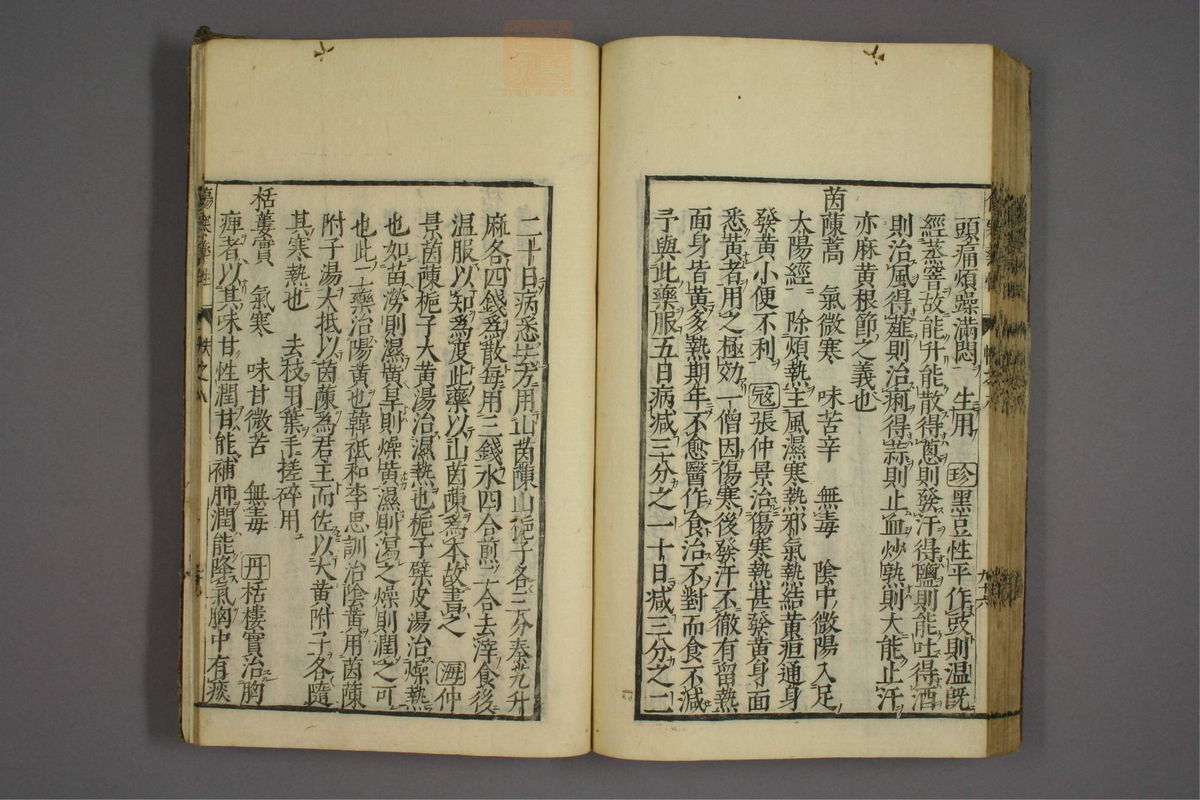 頭痛煩躁滿悶　生用　珍黑豆性平作豉則温既
經蒸窨故能升能散得蔥則發汗得鹽則能吐得酒
則治風得薤則治痢得蒜則止血炒熟則大能止汗
亦麻黄根節之義也
茵蔯蒿　氣微寒　味苦辛　無毒　陰中微陽入足
太陽經　除煩熱主風濕寒熱邪氣熱結黄疸通身
發黄小便不利　寇張仲景治傷寒熱甚發黄身面
悉黄者用之極効一僧因傷寒後發汗不徹有留熱
面身皆黄多熱期年不愈醫作食治不對而食不減
予與此藥服五日病減三分之一十日減三分之二
二十日病悉去方用山茵蔯山梔子各三分秦艽升
麻各四錢爲散每用三錢水四合煎二合去滓食後
温服以知爲度此藥以山茵蔯爲本故書之　海仲
景茵蔯梔子大黄湯治濕熱也梔子蘗皮湯治燥熱
也如苗澇則濕黄旱則燥黄濕則瀉之燥則潤之可
也此二藥治陽黄也韓祗和李思訓治陰黄用茵蔯
附子湯大抵以茵蔯爲君主而佐以大黄附子各隨
其寒熱也　去枝用葉手搓碎用
栝蔞實　氣寒　味甘微苦　無毒　丹栝樓實治胸
痺者以其味甘性潤甘能補肺潤能降氣胸中有痰